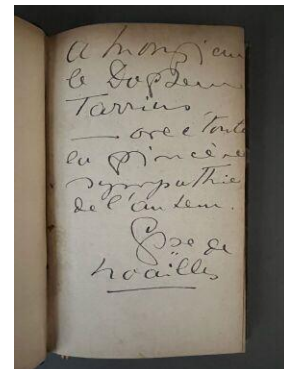 A Monsieur
le Docteur
Tarrius
— avec toute
la sincère
sympathie
de l'auteur.
Csse de
Noailles